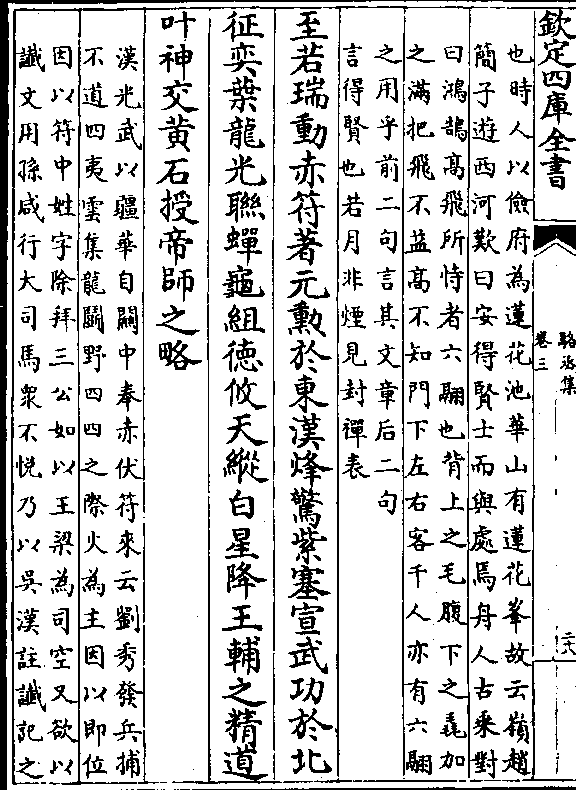 欽定四庫全書
駱丞集
卷三
二六
也時人以儉府為蓮花池華山有蓮花峯故云嶺趙
簡子遊西河歎曰安得賢士而與處焉舟人古乘對
曰鴻鵠髙飛所恃者六翮也背上之毛腹下之毳加
之滿把飛不益髙不知門下左右客千人亦有六翮
之用乎前二句言其文章后二句
言得賢也若月非煙見封禪表
至若瑞動赤符著元勲於東漢烽驚紫塞宣武功於北
征奕葉龍光聯蟬龜組徳攸天縱白星降王輔之精道
叶神交黄石授帝師之略
漢光武以疆華自闗中奉赤伏符來云劉秀發兵捕
不道四夷雲集龍鬭野四四之際火為主因以即位
因以符中姓字除拜三公如以王梁為司空又欲以
讖文用孫咸行大司馬衆不悦乃以吳漢註讖記之